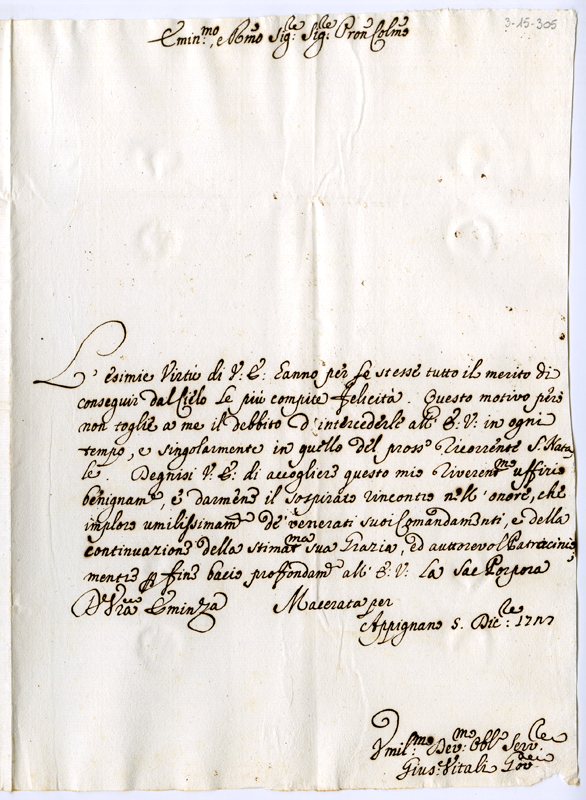 3-15-305
Emin.mo, e Rmo Sig.re Sig.re Pron Colmo
L'esimie Virtù di V. E: hanno per se stesse tutto il merito di
conseguir dal Cielo le più compite felicità. Questo motivo però
non toglie a me il debbito d'intercederle all'E: V: in ogni
tempo, e singolarmente in quello del pross.o ricorrente S. Nata
le. Degnisi V. E: di accogliere questo mio riverent.mo uffizio
benignam.e, e darmene il sospirato rincontro nell'onore, che
imploro umilissimam.e de' venerati suoi Comandamenti, e della
continuazione della stimat.ma sua Grazia, ed autorevol Patrocinio,
mentre per fine bacio proffondam.e all'E: V: la Sac Porpora
D Vra Eminza Macerata per
Appignano 5. Dic.re: 17
Umil.mo Dev.mo Obl.o Serv.re
Gius: Vitali Gov.re